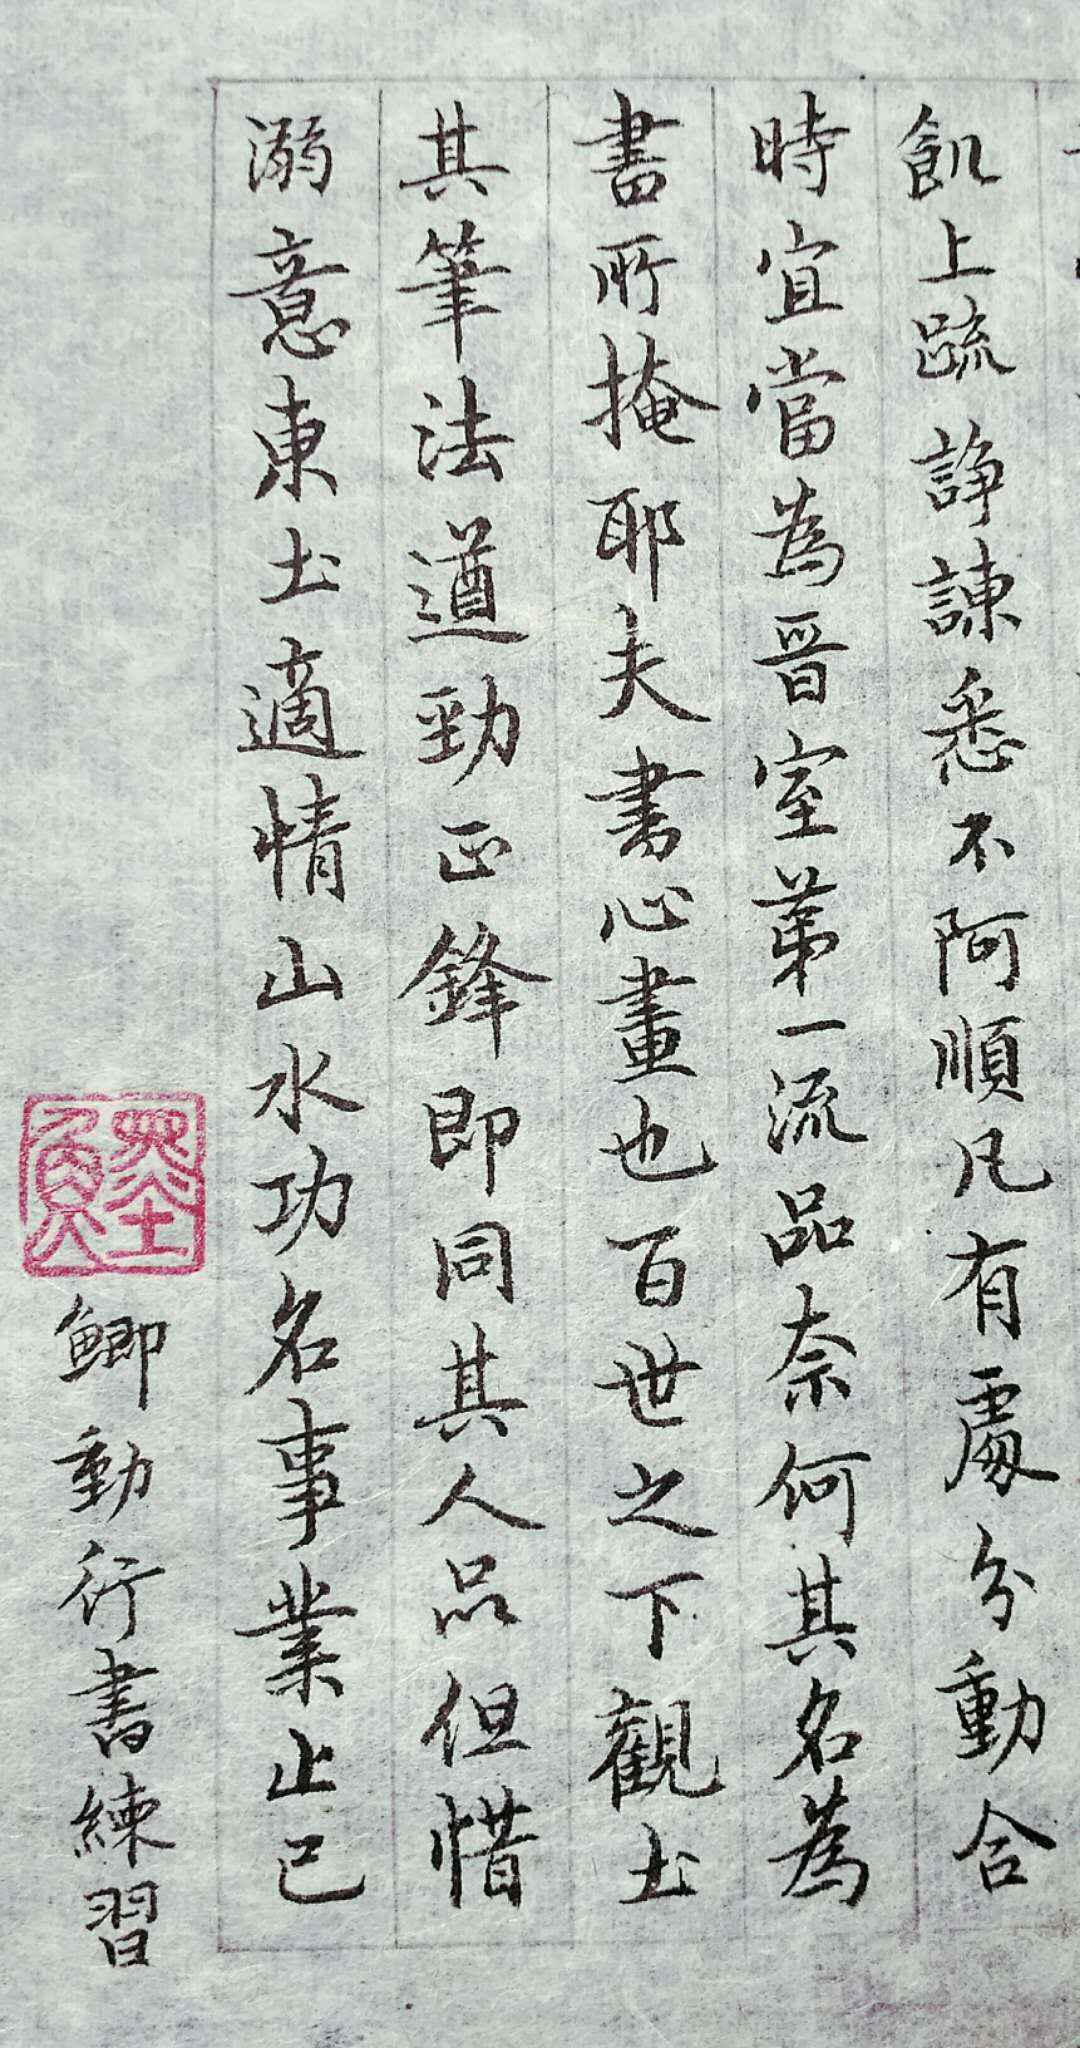 飢上疏諍諫悉不阿順凡有處分動合
時宜當為晉室第一流品奈何其名為
書所掩耶夫書心畫也百世之下觀士
其筆法遒勁正鋒即同其人品但惜
溺意東土適情山水功名事業止已
墨魚
鲫動行書練習